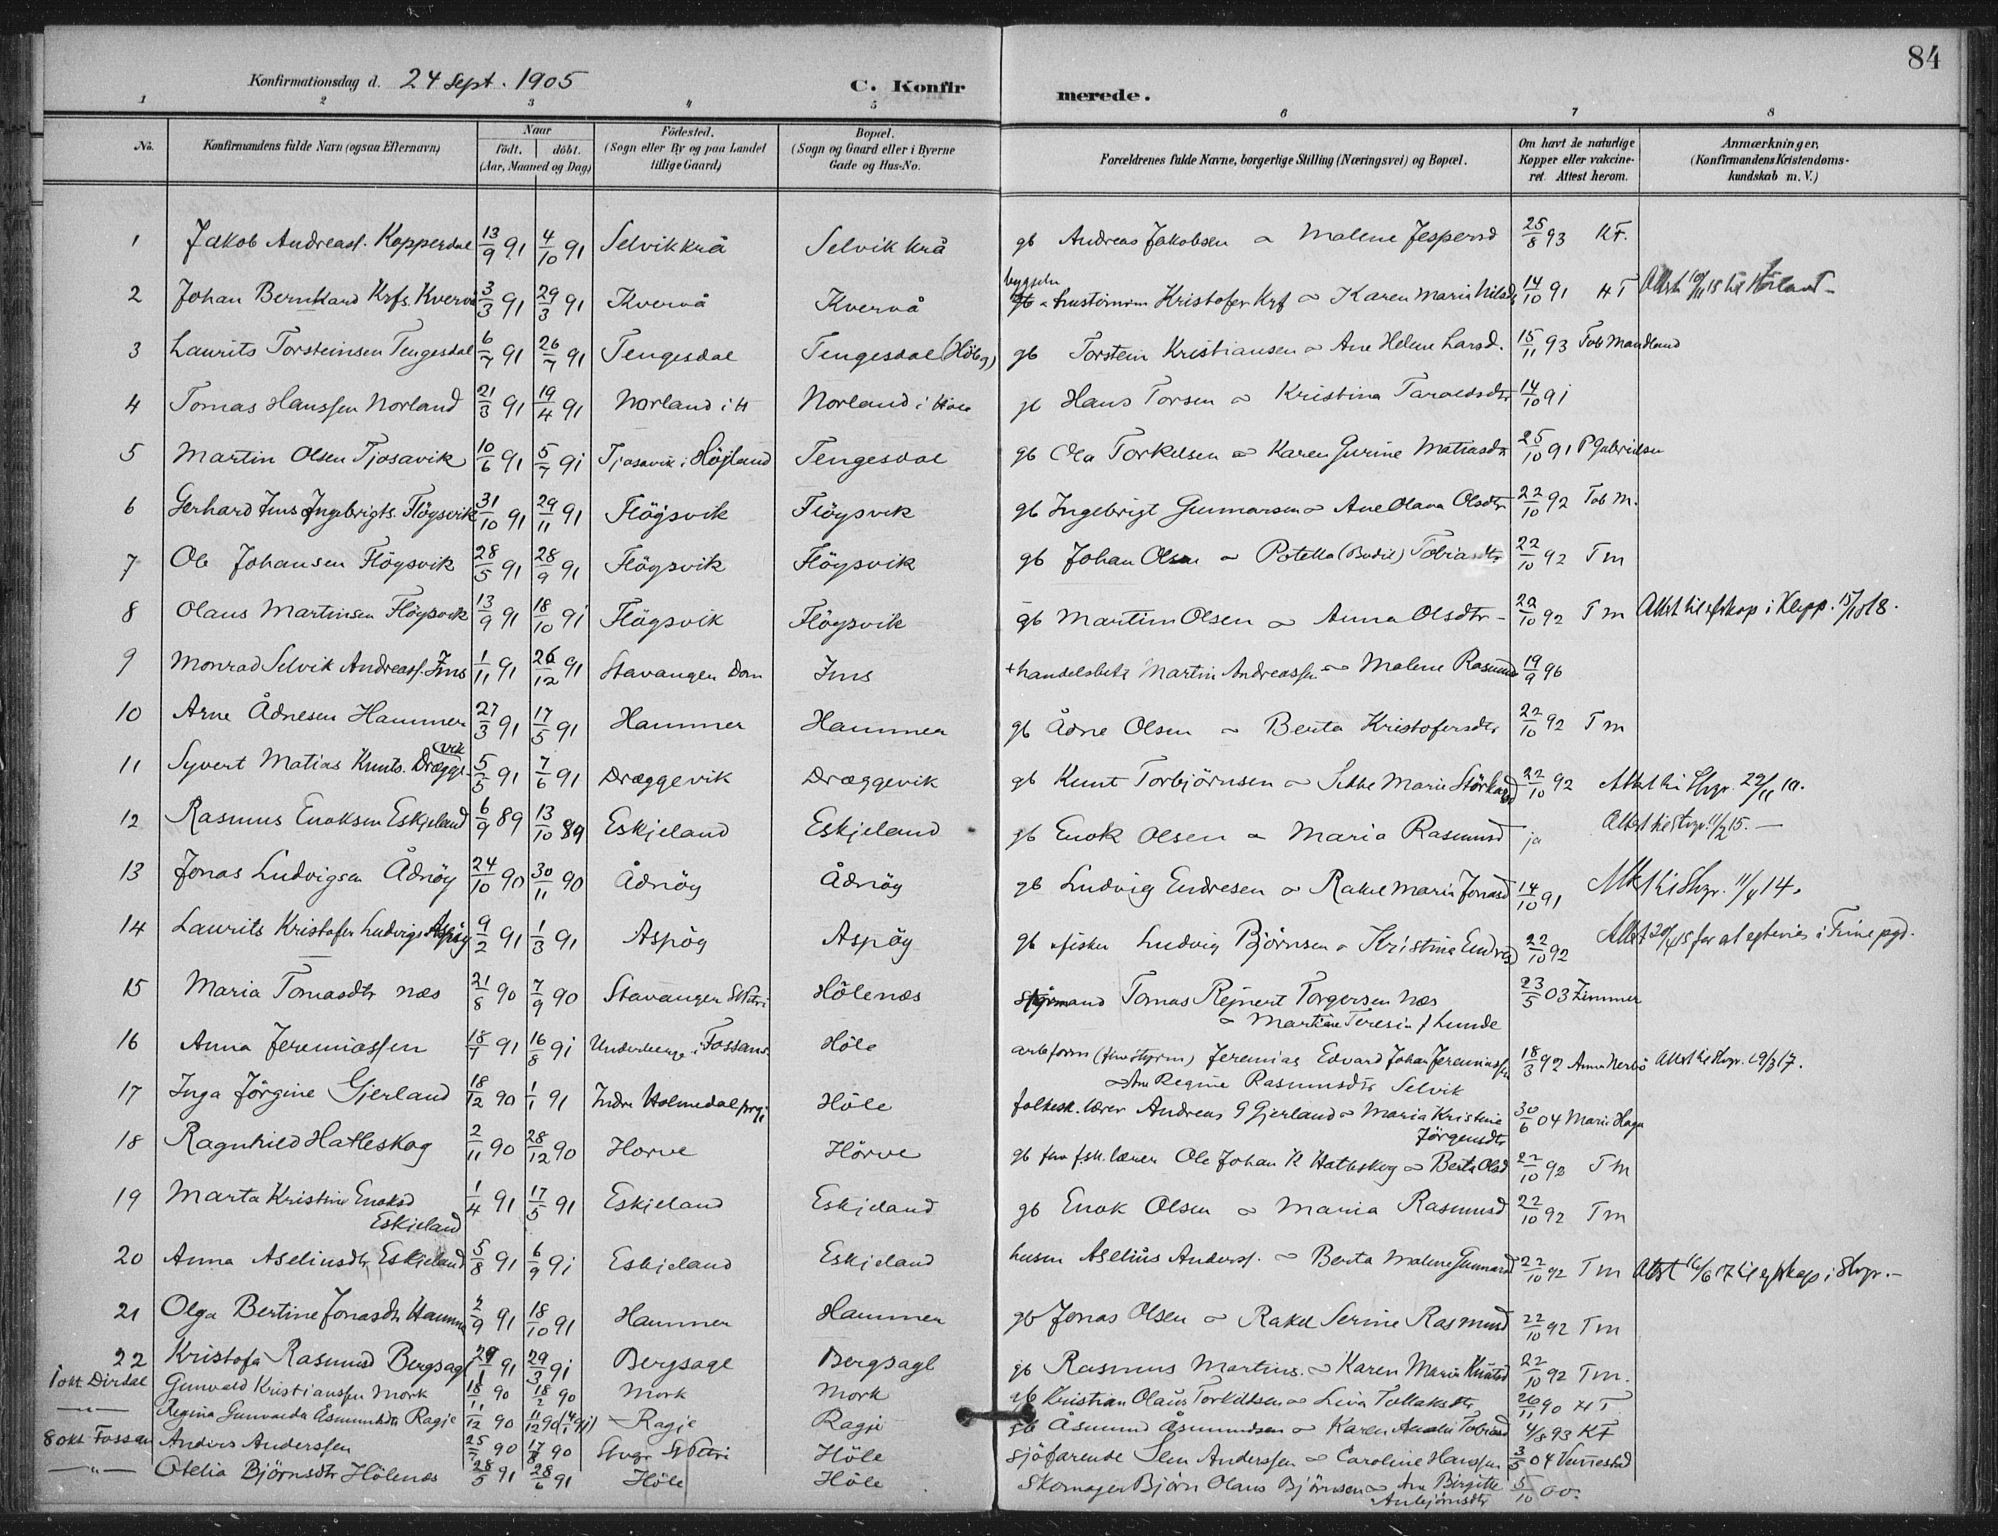 84
Konfirmationsdag d. 24 Sept. 1905 C. Konfirmerede.
1 2 3 4 5 6 7 8
No. Konfirmandens fulde Navn (ogsaa Efternavn) Naar født. døbt. (Aar, Maaned og Dag) Fødested. (Sogn eller By og paa Landet tillige Gaard) Bopæl. (Sogn og Gaard eller i Byerne Gade og Hus-No. Forældrenes fulde Navne, borgerlige Stilling (Næringsvei) og Bopæl. Om havt de naturlige Kopper eller vakcineret. Attest herom. Anmærkninger, (Konfirmandens Kristendomskundskab m. V.)
1 Jakob Andreass. Kopperdal 13/9 91 4/10 91 Selvikkrå Selvik krå gb Andreas Jakobsen & Malene Jespersd 25/8 93 KF.
2 Johan Bernhard Krfs. Kvervå 3/3 91 29/3 91 Kvervå Kvervå Kristofer Krf & Karen Marie Nilsd 14/10 91 HT
3 Laurits Torsteinsen Tengesdal 6/7 91 26/7 91 Tengesdal Tengesdal gb Torstein Kristiansen & Ane Helene Larsd. 15/11 93 Tob Mandland
4 Tomas Hanssen Norland 21/3 91 19/4 91 Norland i H Norland i Høle gb Hans Torsen & Kristina Taraldsdtr 14/10 91
5 Martin Olsen Tjosavik 10/6 91 5/7 91 Tjosavik i Høјland Tengesdal gb Ola Torkelsen & Karen Gurine Matiasdtr 25/10 91 P Gabrielsen
6 Gerhard Jens Ingebrigts. Fløysvik 31/10 91 29/11 91 Fløysvik Fløysvik gb Ingebrigt Gunnarsen & Ane Olava Olsdtr 22/10 92 Tob M.
7 Ole Johansen Fløysvik 28/5 91 28/9 91 Fløysvik Fløysvik gb Johan Olsen & Potella (Bodil) Tobiasdtr 22/10 92 T m
8 Olaus Martinsen Fløysvik 13/9 91 18/10 91 Fløysvik Fløysvik gb Martin Olsen & Anna Olsdtr - 22/10 92 T m Attst til eftskap i Klepp. 15/10 18.
9 Monrad Selvik Andreass. Ims 1/11 91 26/12 91 Stavanger Dom Ims + handelsbetj Martin Andreassen & Malene Rasmusd 19/9 96
10 Arne Ådnesen Hammer 27/3 91 17/5 91 Hammer Hammer gb Ådne Olsen & Berta Kristofersdtr 22/10 92 T m
11 Syvert Matias Knuts. Dræggevik 5/5 91 7/6 91 Dræggevik Dræggevik gb Knut Torbjørnsen & Marie Størkersd 22/10 92 Attst til Stvgr. 22/11 10.
12 Rasmus Enoksen Eskjeland 6/9 89 13/10 89 Eskjeland Eskjeland gb Enok Olsen & Maria Rasmusd ja Attst til Stvgr.
13 Jonas Ludvigsen Ådnøy 24/10 90 30/11 90 Ådnøy Ådnøy gb Ludvig Endresen & Rakel Marie Jonasd 14/10 91 Attst til Stvgr. 14.
14 Laurits Kristofer Ludvigs Aspøy 9/2 91 1/3 91 Aspøy Aspøy gb fisker Ludvig Bjørnsen & Kristine Endresd 22/10 92 Attst 20/4 15 for at ektevies i Time pgd.
15 Maria Tomasdtr Næs 21/8 90 7/9 90 Stavanger St Petri Hølenæs Styrmand Tomas Rejnert Torgersen Næs 23/5 03 Zimmer
& Martine Teresia f Lunde
16 Anna Jeremiassen 18/7 91 16/8 91 Underberge i Fossan Høle Jeremias Edvard Johan Jeremiassen 18/3 92 Anna Nerbø Attst til Stvgr.
& Ane Regine Rasmusdtr Selvik
17 Inga Jørgine Gjerland 18/12 90 1/1 91 Indre Holmedal prgj Høle folkesk. lærer Andreas G Gjerland & Maria Kristine 30/6 04 Marie Haga
Jørgensdtr
18 Ragnhild Hatleskog 2/11 90 28/12 90 Horve Hørve gb fsk. lærer Ole Johan K Hatleskog & Berta Olsd 22/10 92 T M
19 Marta Kristine Enoksd 1/4 91 17/5 91 Eskjeland Eskjeland gb Enok Olsen & Maria Rasmusd 22/10 92 T m
Eskjeland
20 Anna Aseliusdtr Eskjeland 5/8 91 6/9 91 Eskjeland Eskjeland husm Aselius Anderss. & Berta Malene Gunnarsd 22/10 92 T m Attst 17 til eftskap i Stvgr.-
21 Olga Bertine Jonasdtr Hammer 2/9 91 18/10 91 Hammer Hammer gb Jonas Olsen & Rakel Serine Rasmusd 22/10 92 T m
22 Kristofa Rasmusd Bergsagl 91 29/3 91 Bergsagl Bergsagl gb Rasmus Martins. & Karen Marie Knutsd 22/10 92 Tm.
1 okt Dirdal Gunvald Kristianssen Mork 18/11 90 18/2 90 Mork Mork gb Kristian Olaus Torkildsen & Liva Tollaksdtr 26/11 90 HT
— " — Regina Gunvalda Åsmundsdtr Ragje 12 90 Ragje Ragje gb Åsmund Åsmundsen & Karen Amalie Tobiasd 4/8 93 KF
8 okt Fossan Anders Anderssen 25/7 90 17/8 90 Stvgr St Petri Høle sjøfarende Anderssen & Caroline Hanssen 3/5 04 Vinnestad
— " — Otelia Bjørnsdtr Hølenæs 28/5 91 28/6 91 Høle Høle Skomager Bjørn Olaus Bjørnsen & Ane Birgitte 5/10 00.
Anbjørnsdtr